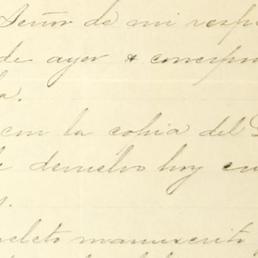 Señor de mi resp
de ayer & corresp
a.
con la cohia del D
devuelvo hoy en
s.
pleto manuscrito